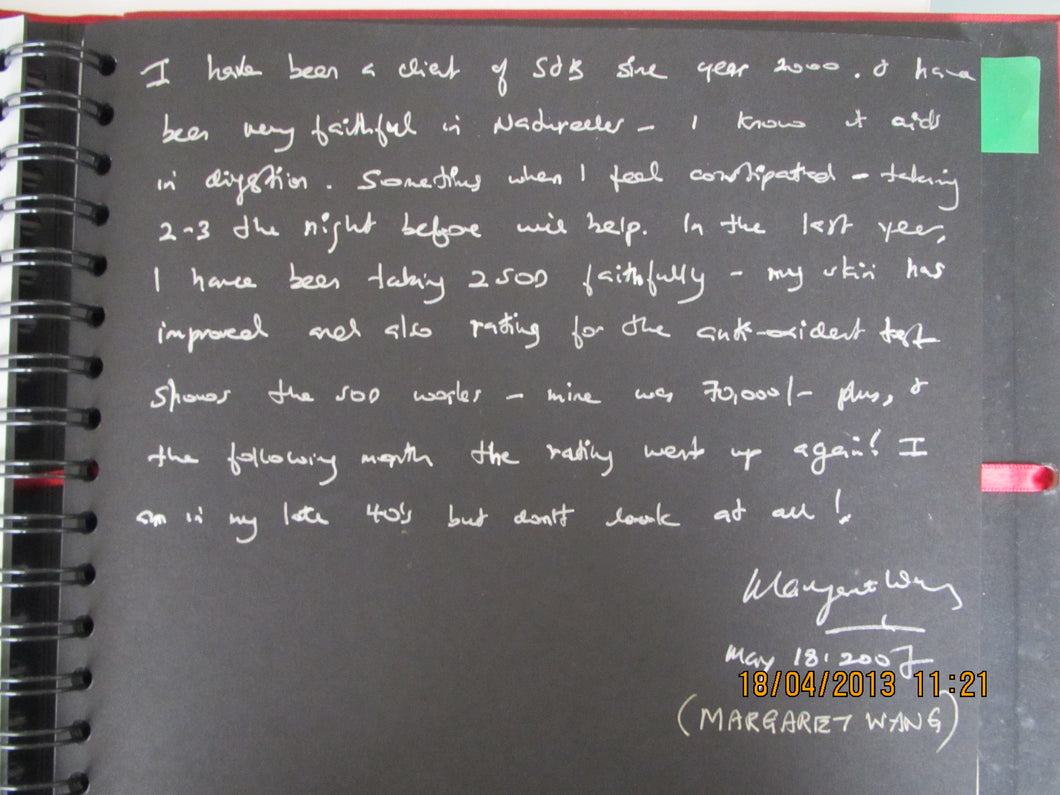 I have been a client of SOB since year 2000. & have
been very faithful in Naturceler - I know it aids
in digestion. Sometimes when I feel constipated - taking
2-3 the night before will help. In the last year,
I have been taking 2 SOD faithfully - my skin has
improved and also rating for the anti-oxident test
shows the SOD works - mine was 70,000/- plus, &
the following month the rating went up again! I
am in my late 40's but don't look at all!
Margaret Wang
May 18, 2007
18/04/2013 11:21
(MARGARET WANG)